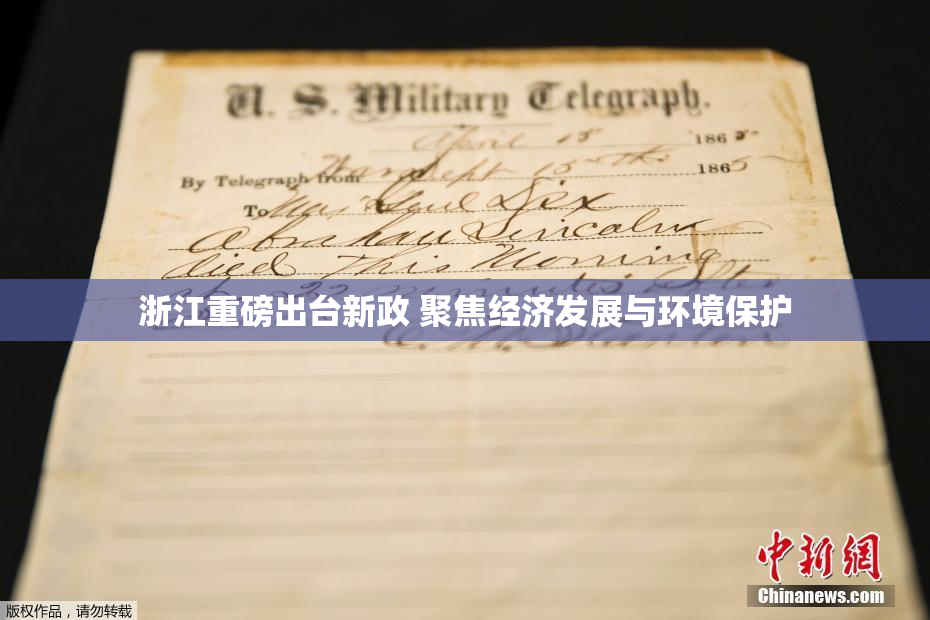 U. S. Military Telegraph.
April 15 1865
By Telegraph from War Dept 15th 1865
To Maj Genl Dix
Abraham Lincoln
died This Morning
22 minutes after
浙江重磅出台新政 聚焦经济发展与环境保护
E. M. Stanton
中新网
Chinanews.com
版权作品,请勿转载